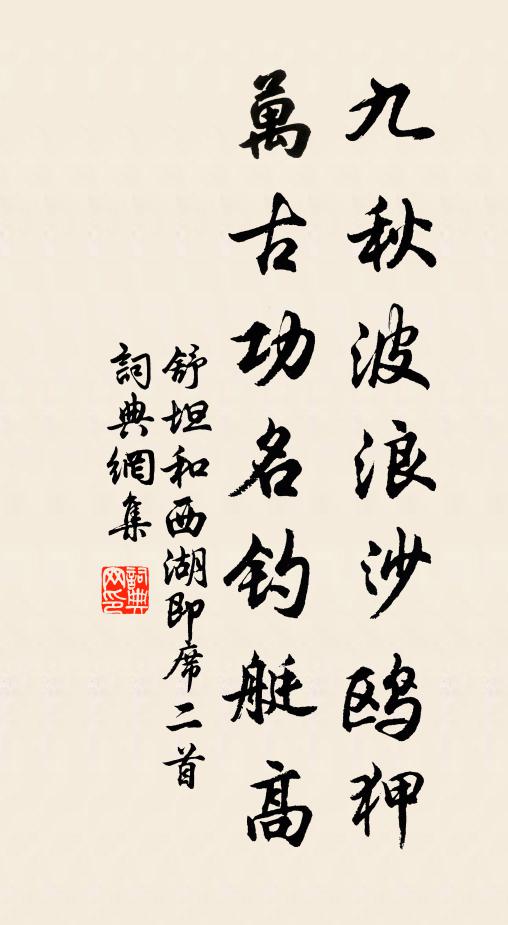 九秋波浪沙鸥狎
萬古功名钓艇高
舒坦和西湖即席二首
詞典網集
詞典網印